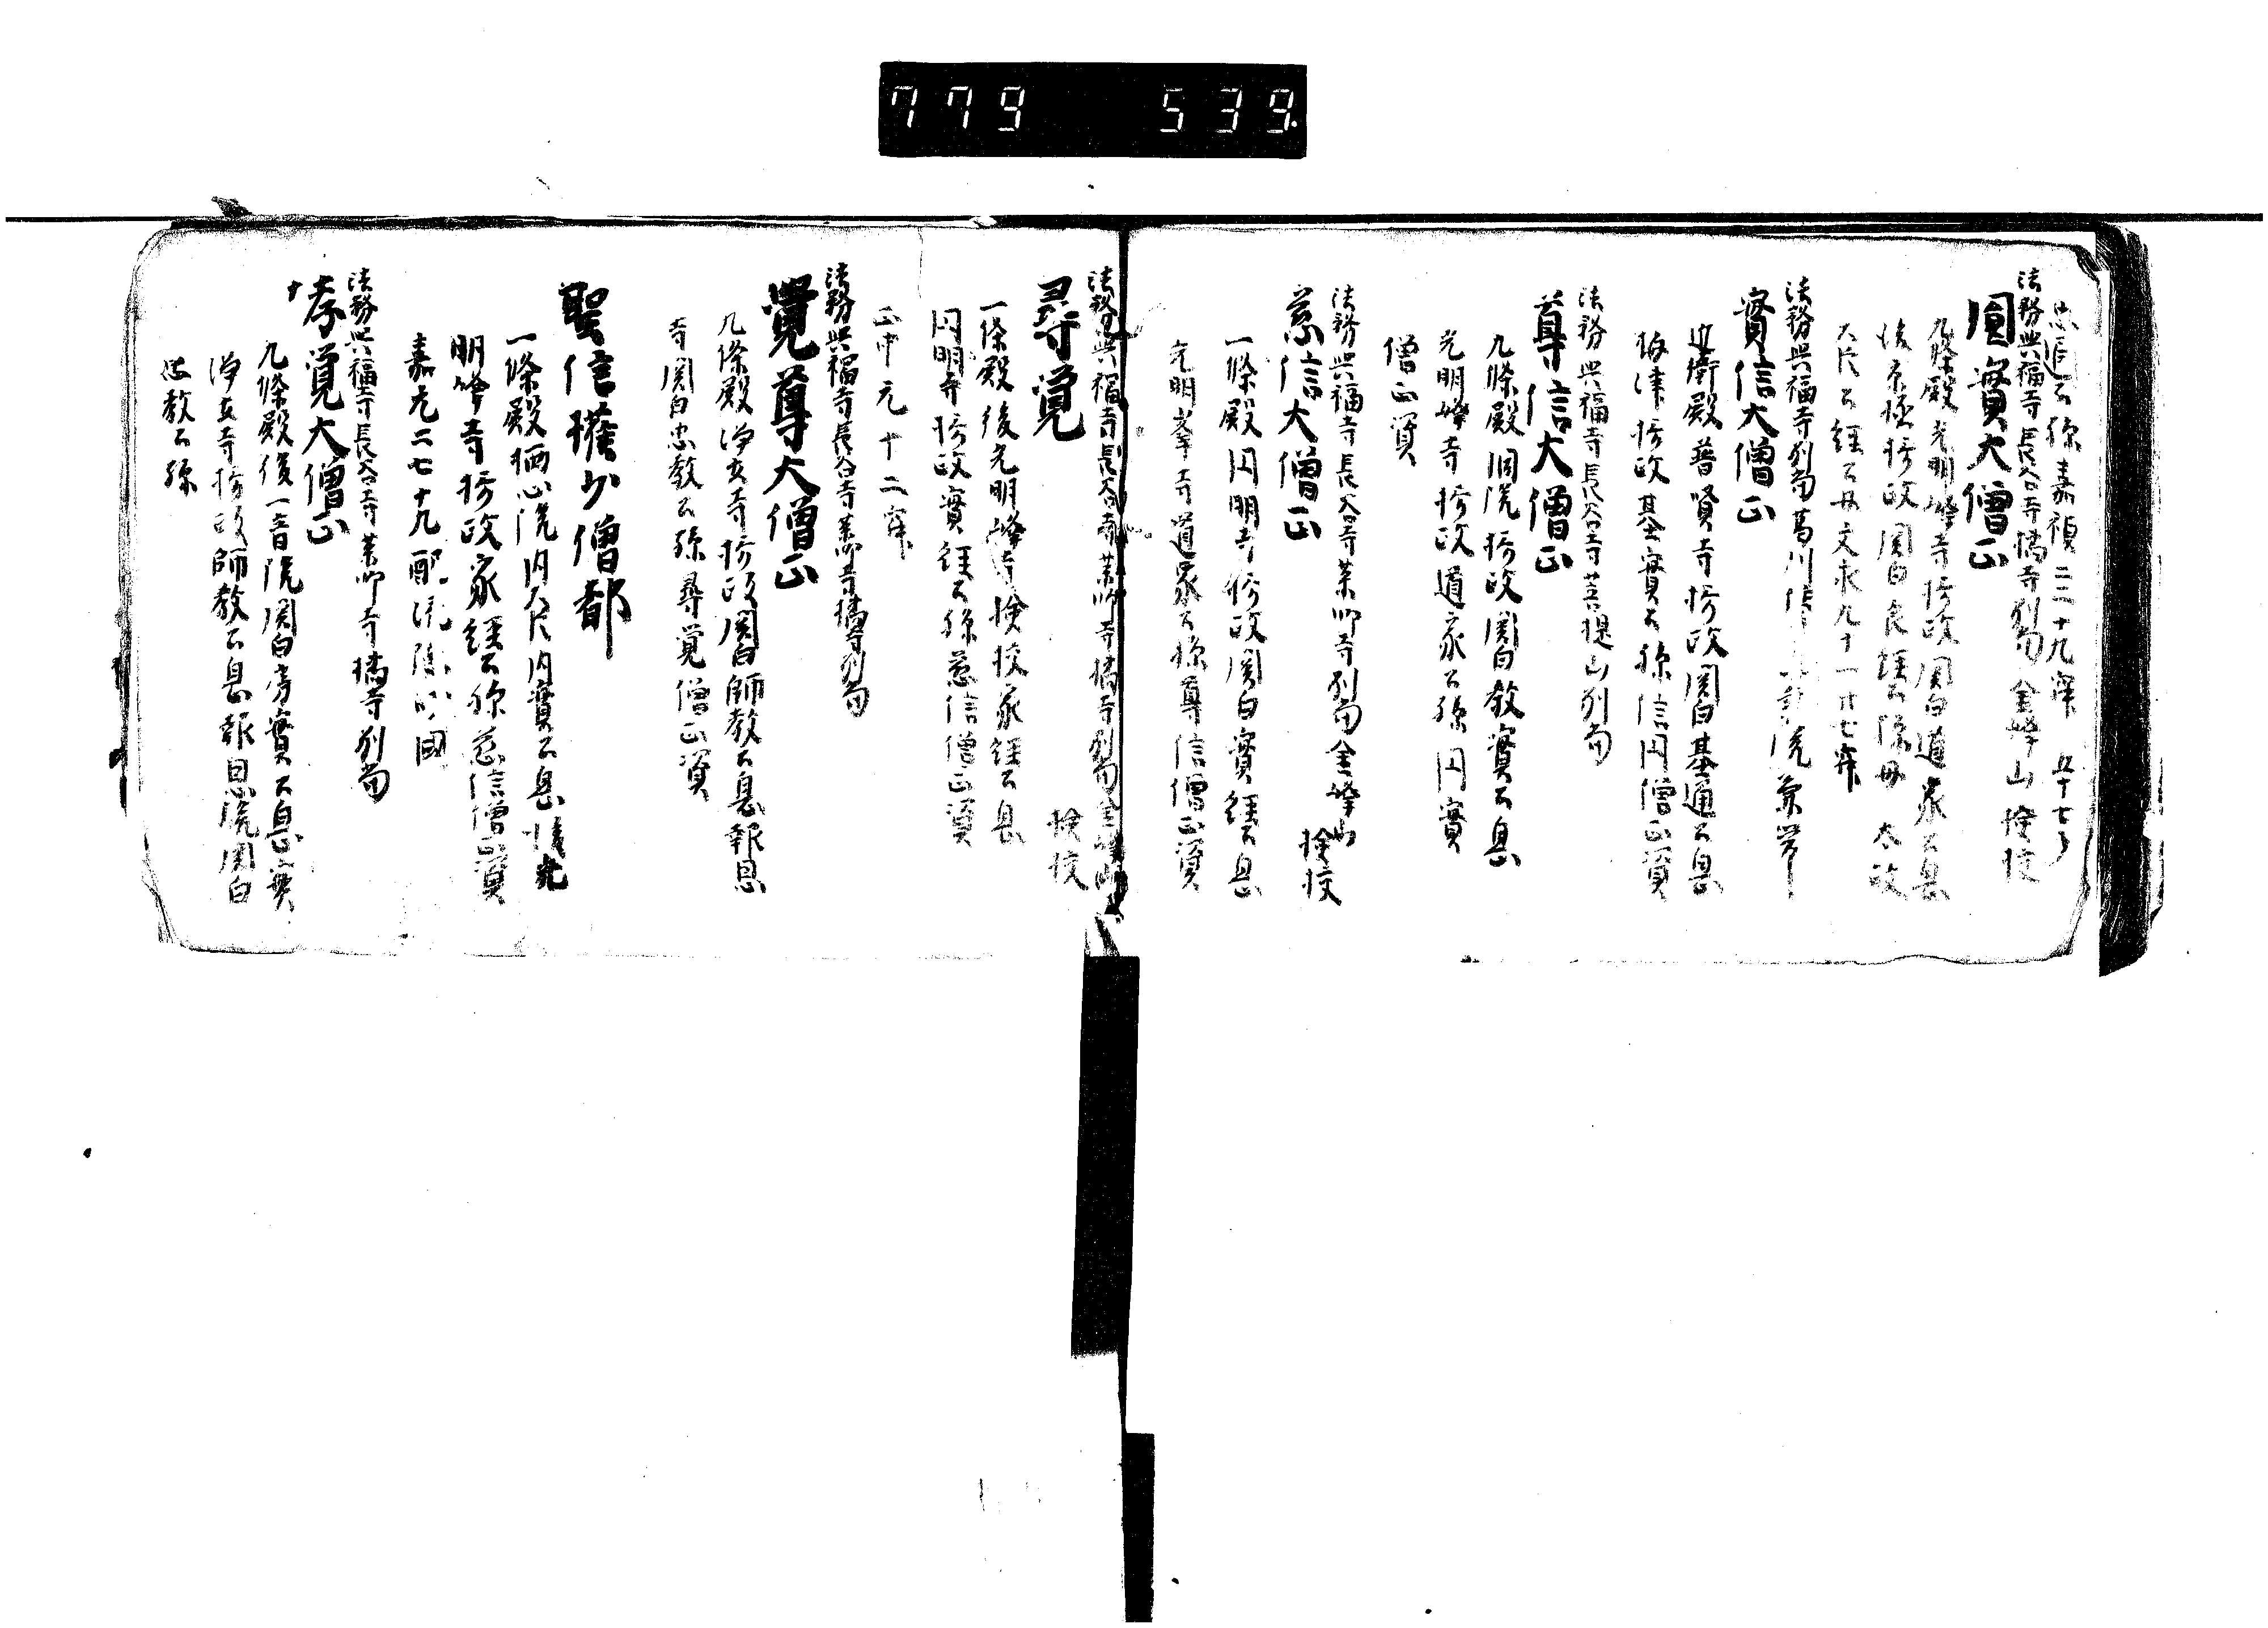 779 539.
忠通公孫嘉禎二三十九寂 五十七了
法務興福寺長谷寺橘寺別當 金峰山 撿挍
圓實大僧正
九條殿光明峰寺摂政関白道家公息
後京極摂政関白良経公孫母 太政
大臣公経公女文永九十一廿七寂
法務興福寺別當
實信大僧正
近衛殿普賢寺摂政関白基通公息
摂政基實公孫信円僧正資
法務興福寺長谷寺菩提山別當
尊信大僧正
九條殿洞院摂政関白教實公息
光明峰寺摂政道家公孫円實
僧正資
法務興福寺長谷寺薬師寺別當金峰山 撿挍
慈信大僧正
一條殿円明寺摂政関白實経公息
光明峯寺道家公孫尊信僧正資
法務興福寺長谷寺薬師寺橘寺別當金峰山 撿挍
尋覚
一條殿後光明峰寺摂政家経公息
円明寺摂政實経公孫慈信僧正資
正中元十二寂
法務興福寺長谷寺薬師寺橘寺別當
覺尊大僧正
九條殿浄土寺摂政関白師教公息報恩
寺関白忠教公孫尋覚僧正資
聖信権少僧都
一條殿栖心院内大臣内實公息
明峰寺摂政家経公孫慈信僧正資
嘉元二七十九配流 國
法務興福寺長谷寺薬師寺橘寺別當
孝覚大僧正
九條殿後一音院関白房實公息實
浄土寺摂政師教公息報恩院関白
忠教公孫